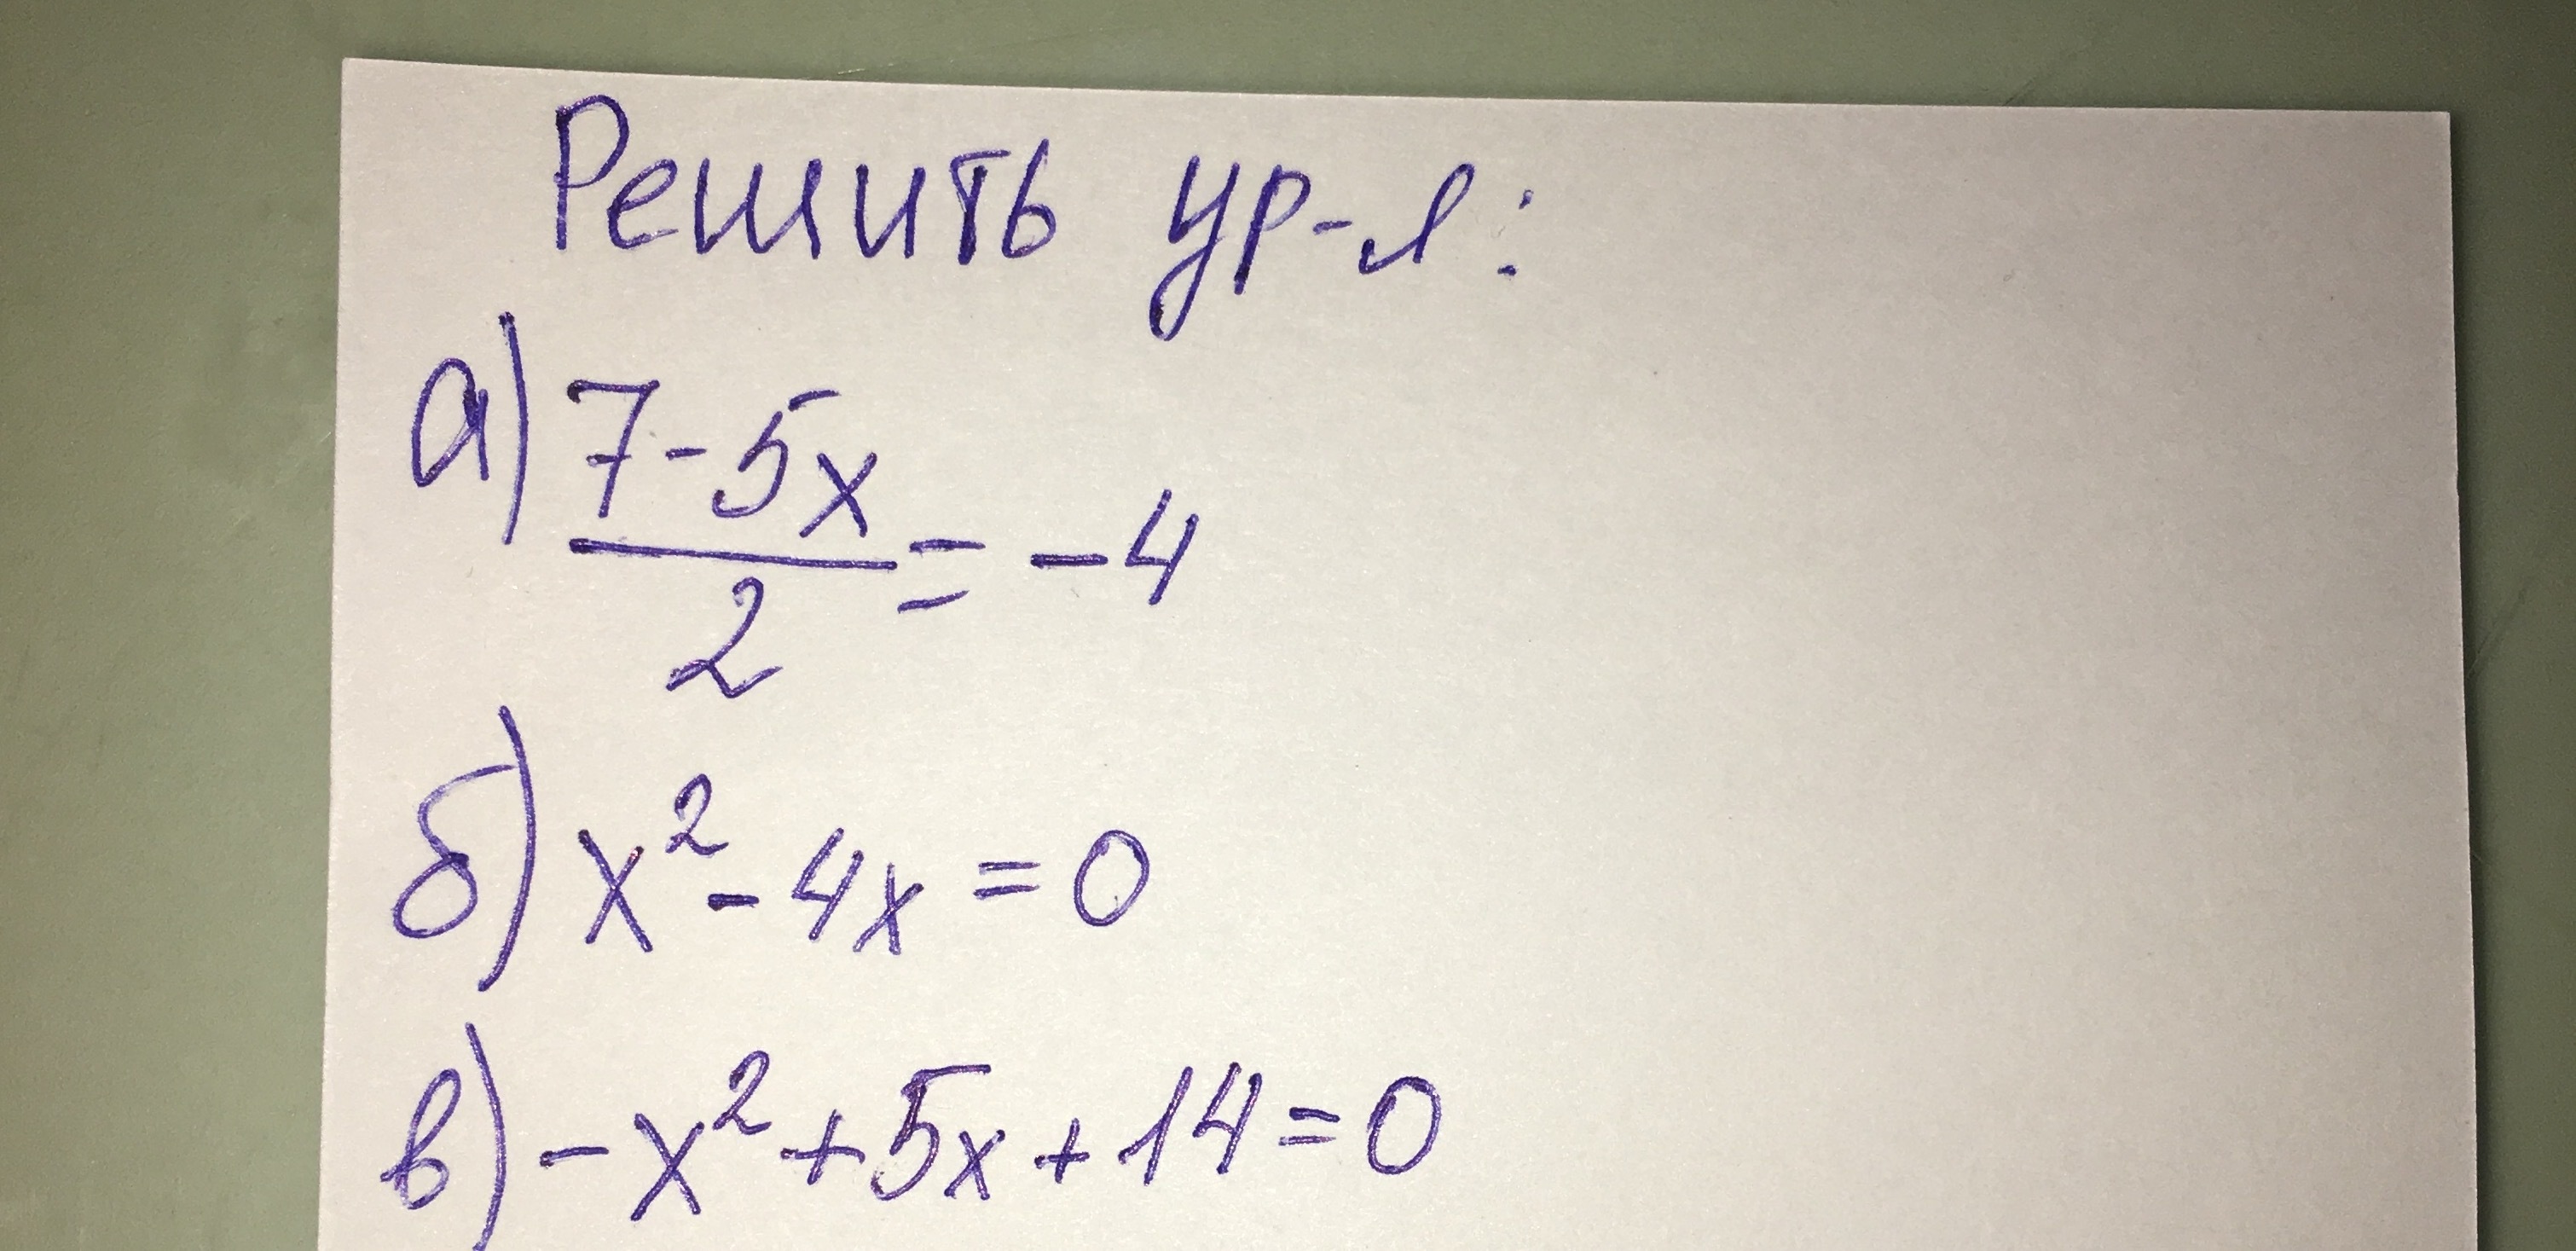 Решить ур-я:
а) 7-5x/2 = -4
б) x²- 4x = 0
в) -x²+5x+14=0